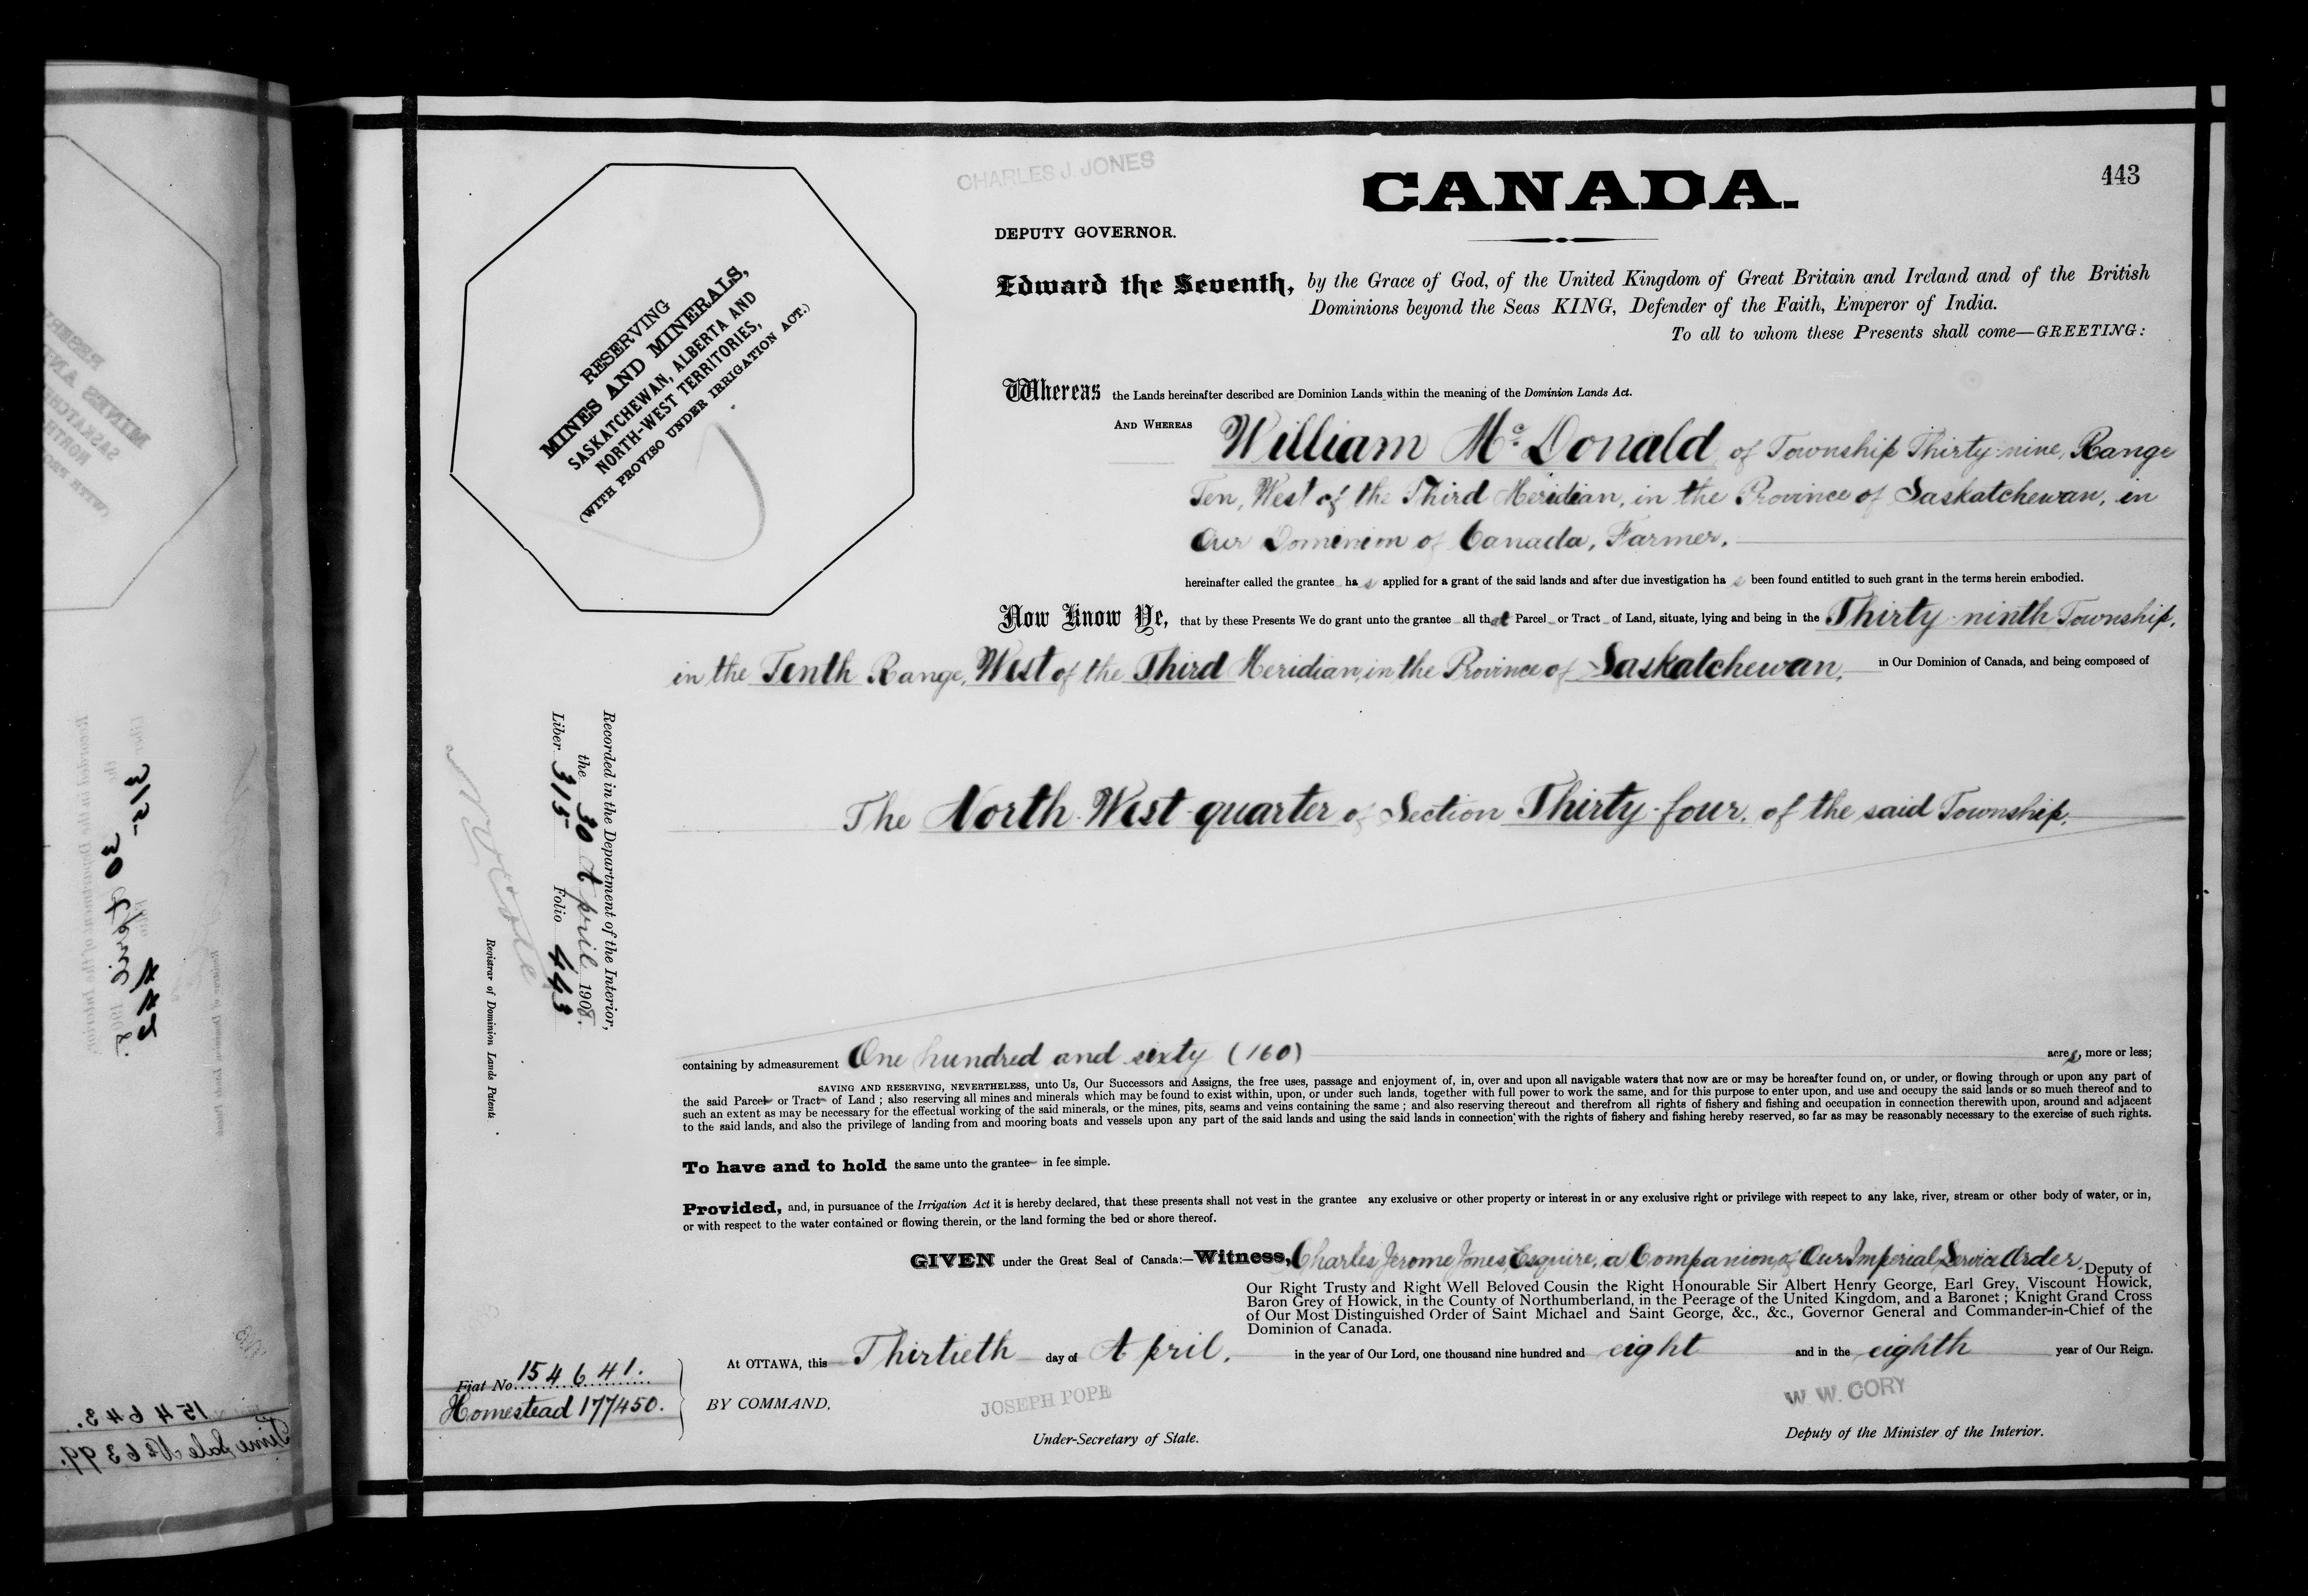 CHARLES J. JONES
CANADA.
443
DEPUTY GOVERNOR.
Edward the Seventh, by the Grace of God, of the United Kingdom of Great Britain and Ireland and of the British
Dominions beyond the Seas KING, Defender of the Faith, Emperor of India.
To all to whom these Presents shall come—GREETING:
RESERVING
MINES AND MINERALS,
SASKATCHEWAN, ALBERTA AND
NORTH-WEST TERRITORIES,
(WITH PROVISO UNDER IRRIGATION ACT.)
Whereas the Lands hereinafter described are Dominion Lands within the meaning of the Dominion Lands Act.
AND WHEREAS William McDonald of Township Thirty-nine, Range
Ten, West of the Third Meridian, in the Province of Saskatchewan, in
Our Dominion of Canada, Farmer.
hereinafter called the grantee has applied for a grant of the said lands and after due investigation has been found entitled to such grant in the terms herein embodied.
Now Know Ye, that by these Presents We do grant unto the grantee all that Parcel or Tract of Land, situate, lying and being in the Thirty-ninth Township,
in the Tenth Range, West of the Third Meridian, in the Province of Saskatchewan, in Our Dominion of Canada, and being composed of
The North West quarter of Section Thirty-four, of the said Township.
Recorded in the Department of the Interior,
the 30 April 1908.
Liber 315 Folio 443
Registrar of Dominion Lands Patents.
containing by admeasurement One hundred and sixty (160) acres, more or less;
SAVING AND RESERVING, NEVERTHELESS, unto Us, Our Successors and Assigns, the free uses, passage and enjoyment of, in, over and upon all navigable waters that now are or may be hereafter found on, or under, or flowing through or upon any part of
the said Parcel or Tract of Land; also reserving all mines and minerals which may be found to exist within, upon, or under such lands, together with full power to work the same, and for this purpose to enter upon, and use and occupy the said lands or so much thereof and to
such an extent as may be necessary for the effectual working of the said minerals, or the mines, pits, seams and veins containing the same; and also reserving thereout and therefrom all rights of fishery and fishing and occupation in connection therewith upon, around and adjacent
to the said lands, and also the privilege of landing from and mooring boats and vessels upon any part of the said lands and using the said lands in connection with the rights of fishery and fishing hereby reserved, so far as may be reasonably necessary to the exercise of such rights.
To have and to hold the same unto the grantee in fee simple.
Provided, and, in pursuance of the Irrigation Act it is hereby declared, that these presents shall not vest in the grantee any exclusive or other property or interest in or any exclusive right or privilege with respect to any lake, river, stream or other body of water, or in,
or with respect to the water contained or flowing therein, or the land forming the bed or shore thereof.
GIVEN under the Great Seal of Canada:—Witness, Charles Jerome Jones, Esquire, a Companion of Our Imperial Service Order, Deputy of
Our Right Trusty and Right Well Beloved Cousin the Right Honourable Sir Albert Henry George, Earl Grey, Viscount Howick,
Baron Grey of Howick, in the County of Northumberland, in the Peerage of the United Kingdom, and a Baronet; Knight Grand Cross
of Our Most Distinguished Order of Saint Michael and Saint George, &c., &c., Governor General and Commander-in-Chief of the
Dominion of Canada.
At OTTAWA, this Thirtieth day of April, in the year of Our Lord, one thousand nine hundred and eight and in the eighth year of Our Reign.
Fiat No. 154641.
Homestead 177450.
BY COMMAND,
JOSEPH POPE
Under-Secretary of State.
W. W. CORY
Deputy of the Minister of the Interior.